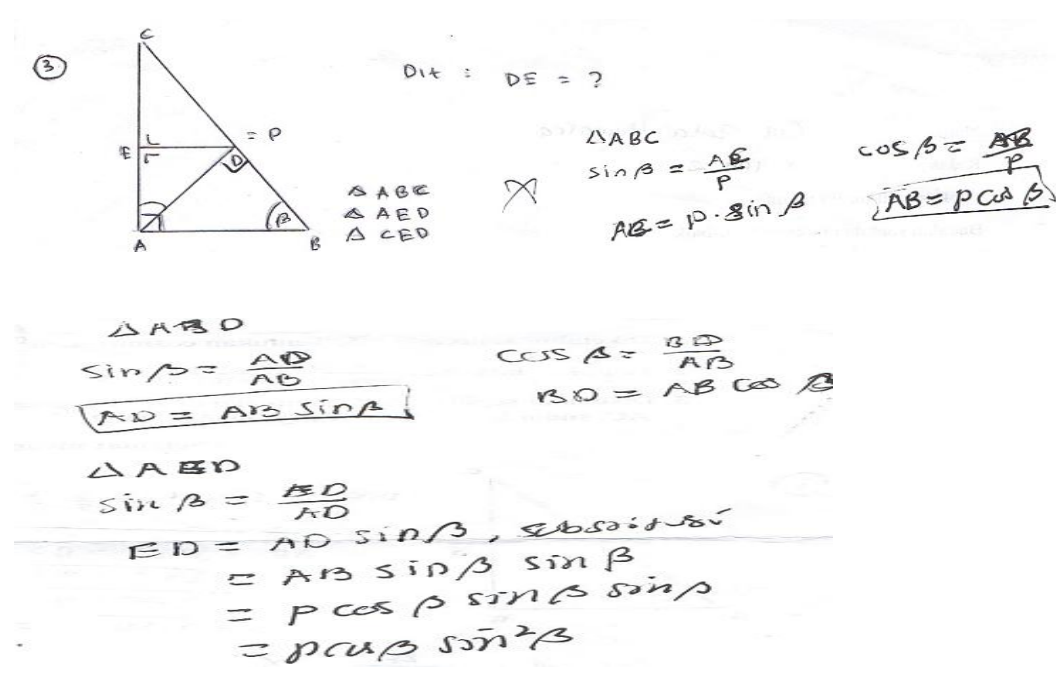 ③
C
E
= P
D
A
β
B
Dit : DE = ?
△ ABC
△ AED
△ CED
△ABC
sin β = AC/P
AC = p · sin β
cos β = AB/P
AB = p cos β
△ ABD
sin β = AD/AB
AD = AB sin β
cos β = BD/AB
BD = AB cos β
△ AED
sin β = ED/AD
ED = AD sin β, subsitusi
= AB sin β sin β
= p cos β sin β sin β
= p cos β sin²β